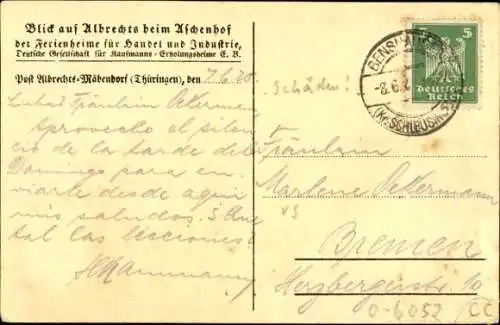 Blick auf Albrechts beim Aschenhof
der Ferienheime für Handel und Industrie,
Deutsche Gesellschaft für Kaufmanns-Erholungsheime E. V.
Post Albrechts-Mäbendorf (Thüringen), den 7/6 25.
Fräulein Ockermann
Aprovecho el silen
cio de la tarde del
Domingo para en
viarle desde aqui
mis saludos. ¿Que
tal las lecciones?
Schäden!
5
Deutsches
Reich
BENSH
-8.6.2
(Kr. SCHLEUSING
Fräulein
Marlene Ockermann
VS
Bremen
Herzbergerstr. 10
0-6052 CC